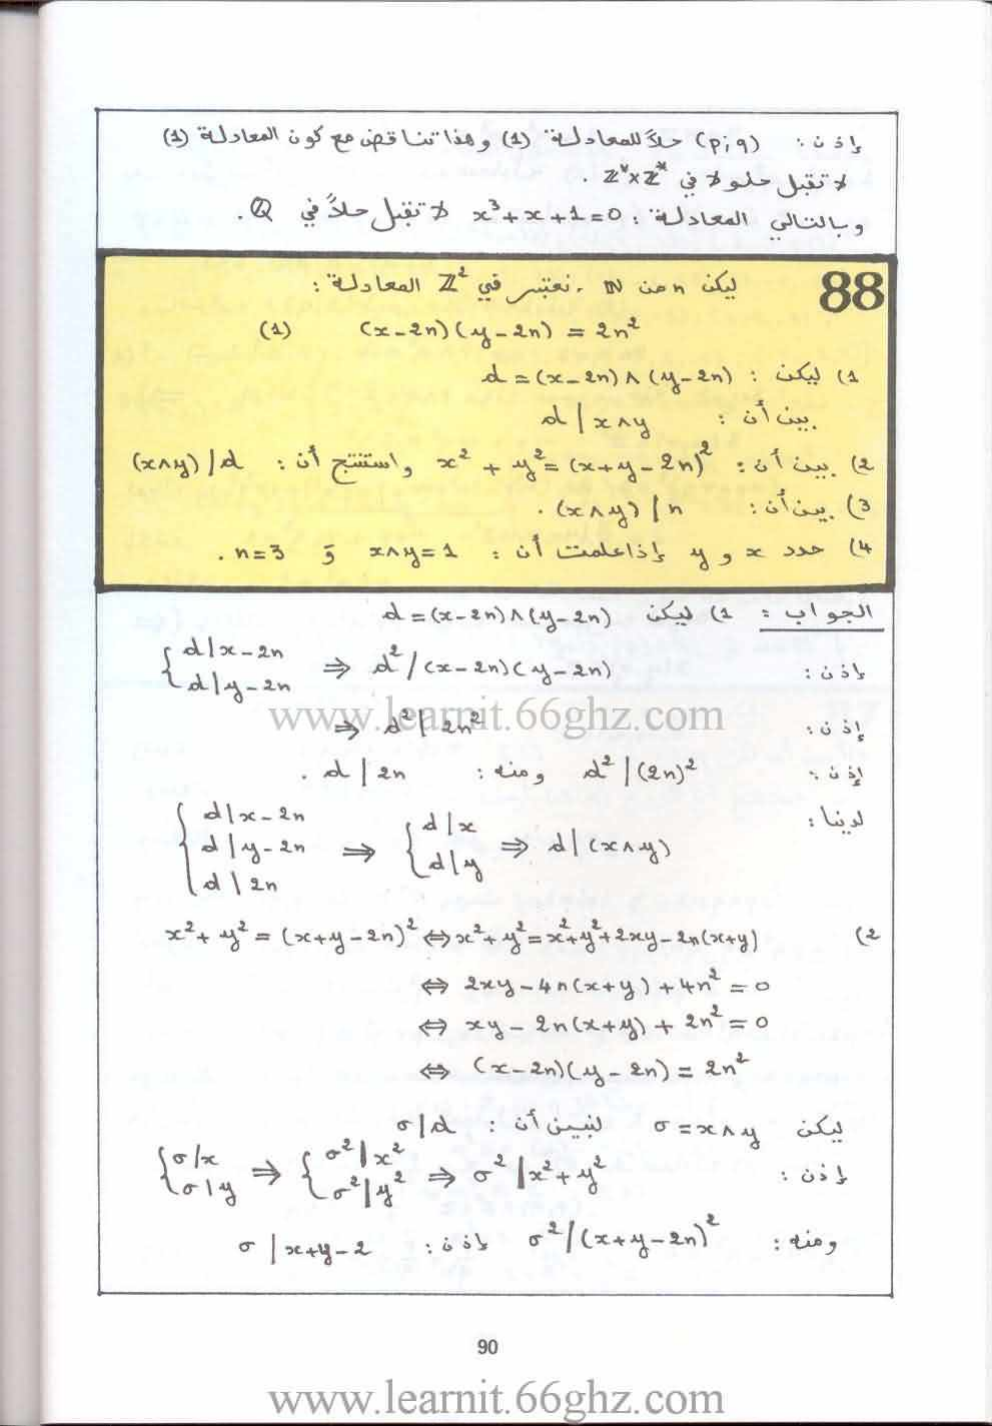 إذن : (p;q) حلاً للمعادلة (1) وهذا تناقض مع كون المعادلة (1)
لا تقبل حلولا في ℤ*×ℤ* .
وبالتالي المعادلة : x³+x+1=0 لا تقبل حلاً في ℚ .
88 ليكن n من ℕ . نعتبر في ℤ² المعادلة :
(x-2n)(y-2n) = 2n² (1)
1) ليكن : d = (x-2n)∧(y-2n)
بين أن : d | x∧y
2) بين أن : x² + y² = (x+y-2n)² واستنتج أن : (x∧y)/d
3) بين أن : (x∧y) | n .
4) حدد x و y إذا علمت أن : x∧y=1 و n=3 .
الجواب : 1) ليكن d = (x-2n)∧(y-2n)
إذن : { d|x-2n ; d|y-2n ⇒ d²/(x-2n)(y-2n)
إذن : ⇒ d² | 2n²
www.learnit.66ghz.com
إذن : d² | (2n)² ومنه : d | 2n .
لدينا : { d|x-2n ; d|y-2n ; d|2n ⇒ { d|x ; d|y ⇒ d|(x∧y)
2) x²+y² = (x+y-2n)² ⇔ x²+y²=x²+y²+2xy-2n(x+y)
⇔ 2xy-4n(x+y)+4n² = 0
⇔ xy-2n(x+y)+2n² = 0
⇔ (x-2n)(y-2n) = 2n²
ليكن σ = x∧y لنبين أن : σ|d
إذن : { σ/x ; σ|y ⇒ { σ²|x² ; σ²|y² ⇒ σ² | x²+y²
ومنه : σ²/(x+y-2n)² إذن : σ | x+y-2
90
www.learnit.66ghz.com